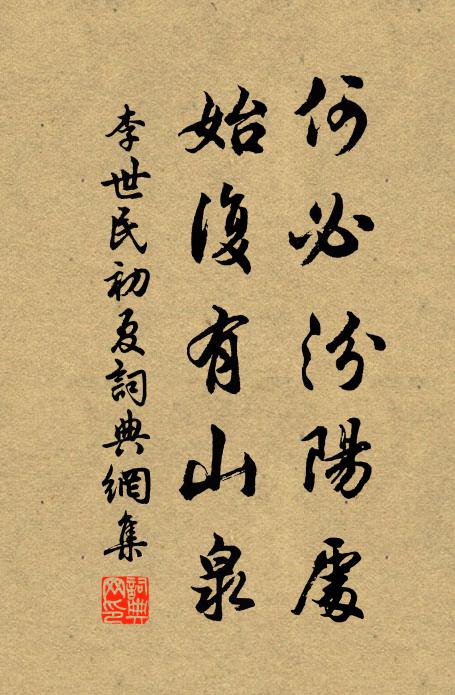 何必汾陽處
始復有山泉
李世民初夏詞典網集
詞典网印